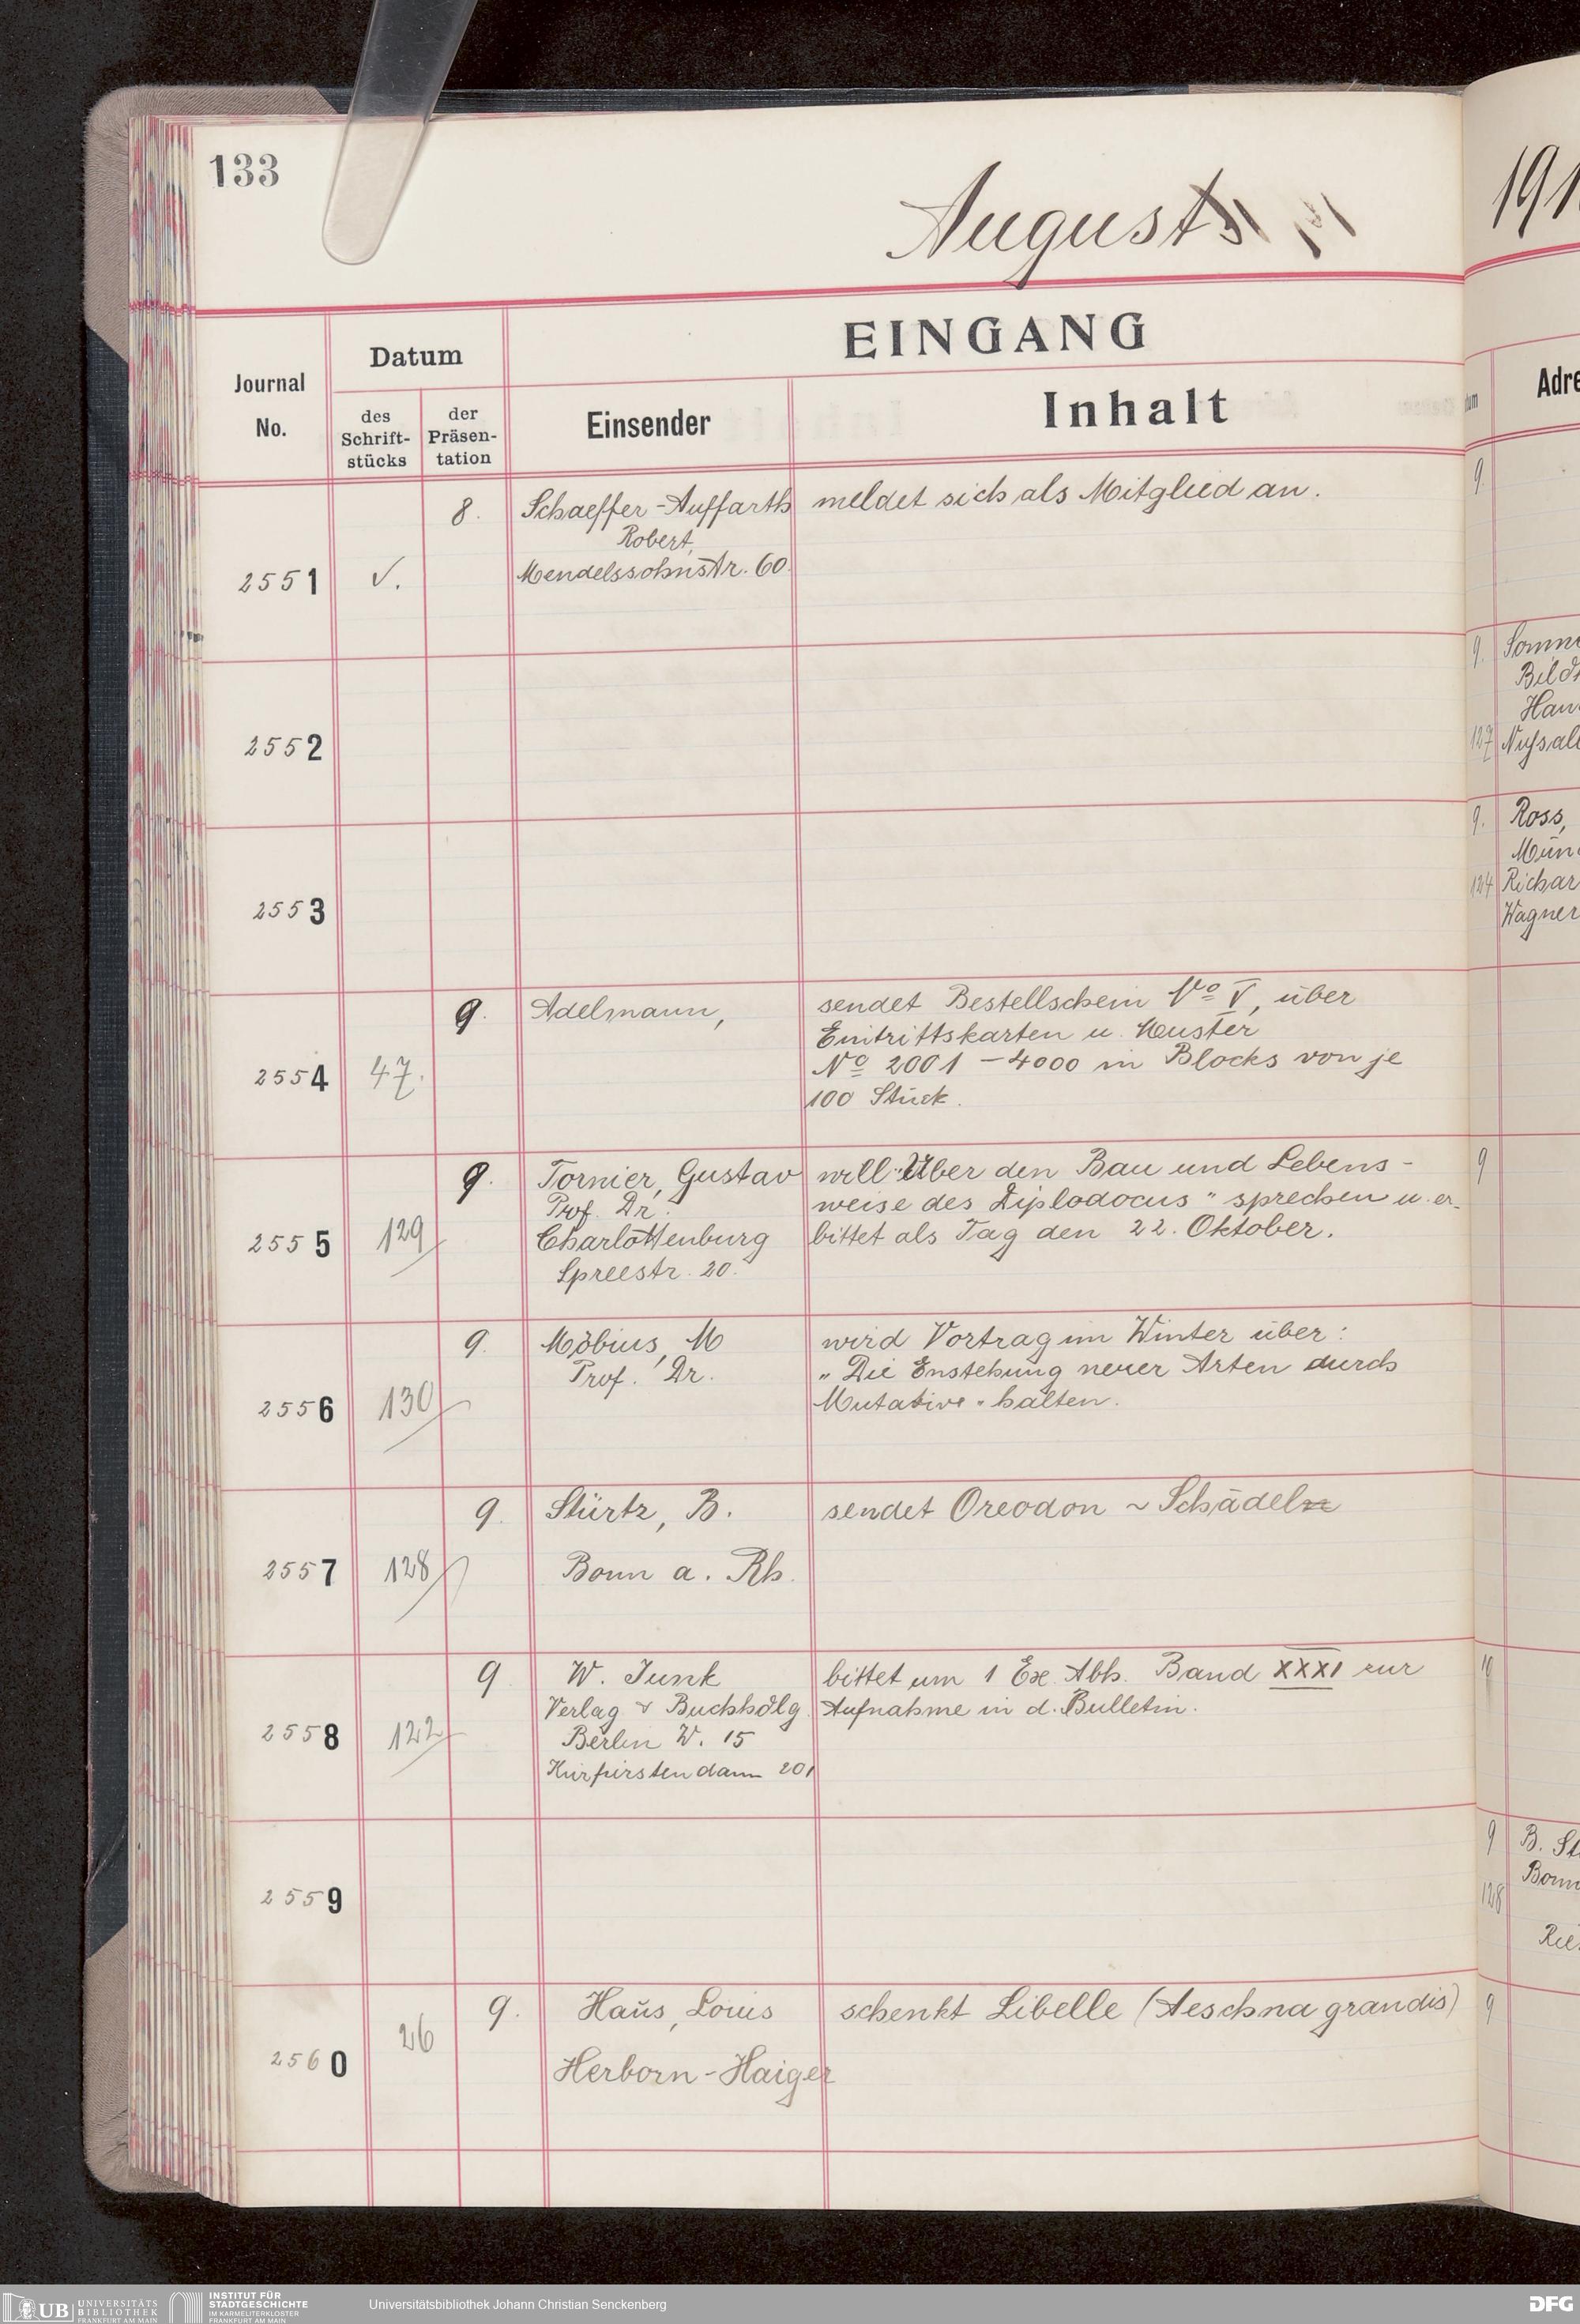 133
August
191
EINGANG
Journal
No.
Datum
des
Schrift-
stücks
der
Präsen-
tation
Einsender
Inhalt
Adre
2551
√.
8.
Schaeffer-Auffarth
Robert,
Mendelssohnstr. 60.
meldet sich als Mitglied an.
9.
2552
9.
Bild
Han
127
2553
9.
Ross,
Mün
124
Richar
Wagner
2554
47.
9.
Adelmann,
sendet Bestellschein No V, über
Eintrittskarten u. Muster
No 2001 - 4000 in Blocks von je
100 Stück.
2555
129
9.
Tornier, Gustav
Prof. Dr.
Charlottenburg
Spreestr. 20.
will "Über den Bau und Lebens-
weise des Diplodocus" sprechen u. er-
bittet als Tag den 22. Oktober.
9
2556
130
9.
Möbius, M
Prof. Dr.
wird Vortrag im Winter über:
„Die Enstehung neuer Arten durch
halten.
2557
128
9.
Stürtz, B.
Bonn a. Rh.
sendet Oreodon ~ Schädel
2558
122
9
W. Junk
Verlag & Buchhdlg.
Berlin W. 15
Kurfürstendam 201
bittet um 1 Ex. Abh. Band XXXI zur
Aufnahme in d. Bulletin.
10
2559
9
B. St
Bonn
128
2560
26
9.
Haus, Louis
Herborn-Haiger
schenkt Libelle (Aeschna grandis)
9
UB UNIVERSITÄTS
BIBLIOTHEK
FRANKFURT AM MAIN
INSTITUT FÜR
STADTGESCHICHTE
IM KARMELITERKLOSTER
FRANKFURT AM MAIN
Universitätsbibliothek Johann Christian Senckenberg
DFG